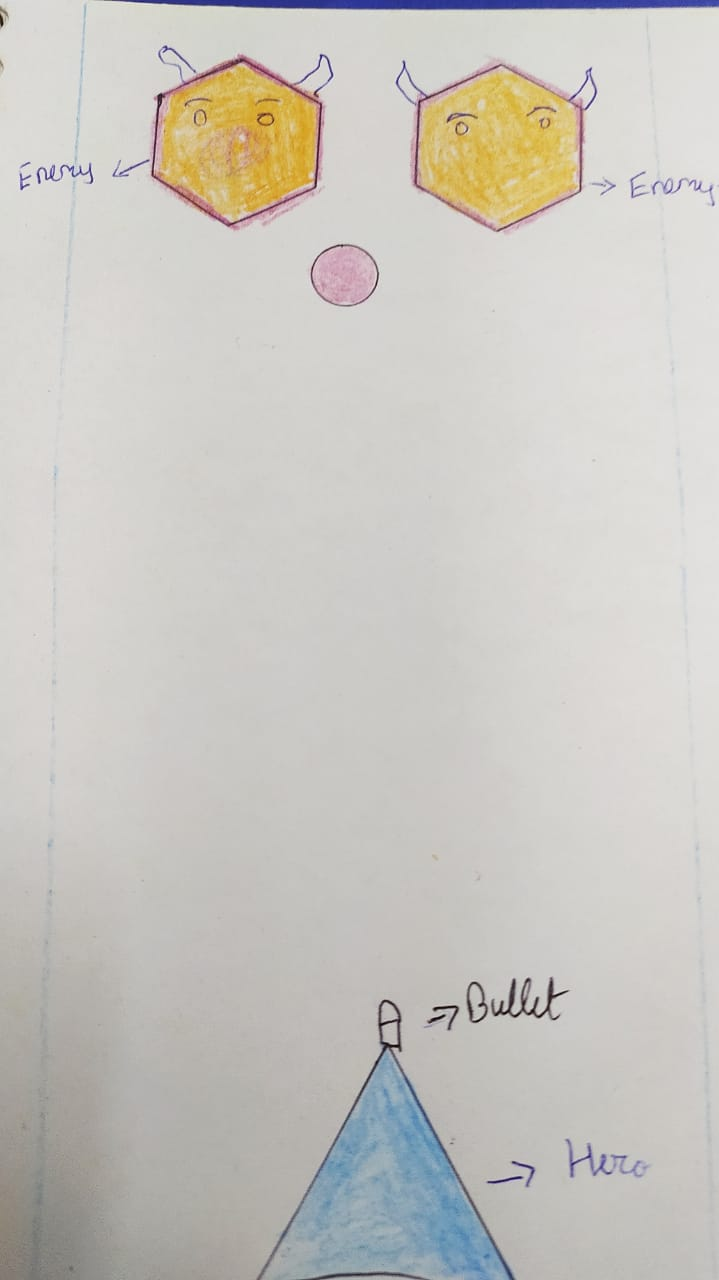 Enemy
Enemy
Bullet
Hero